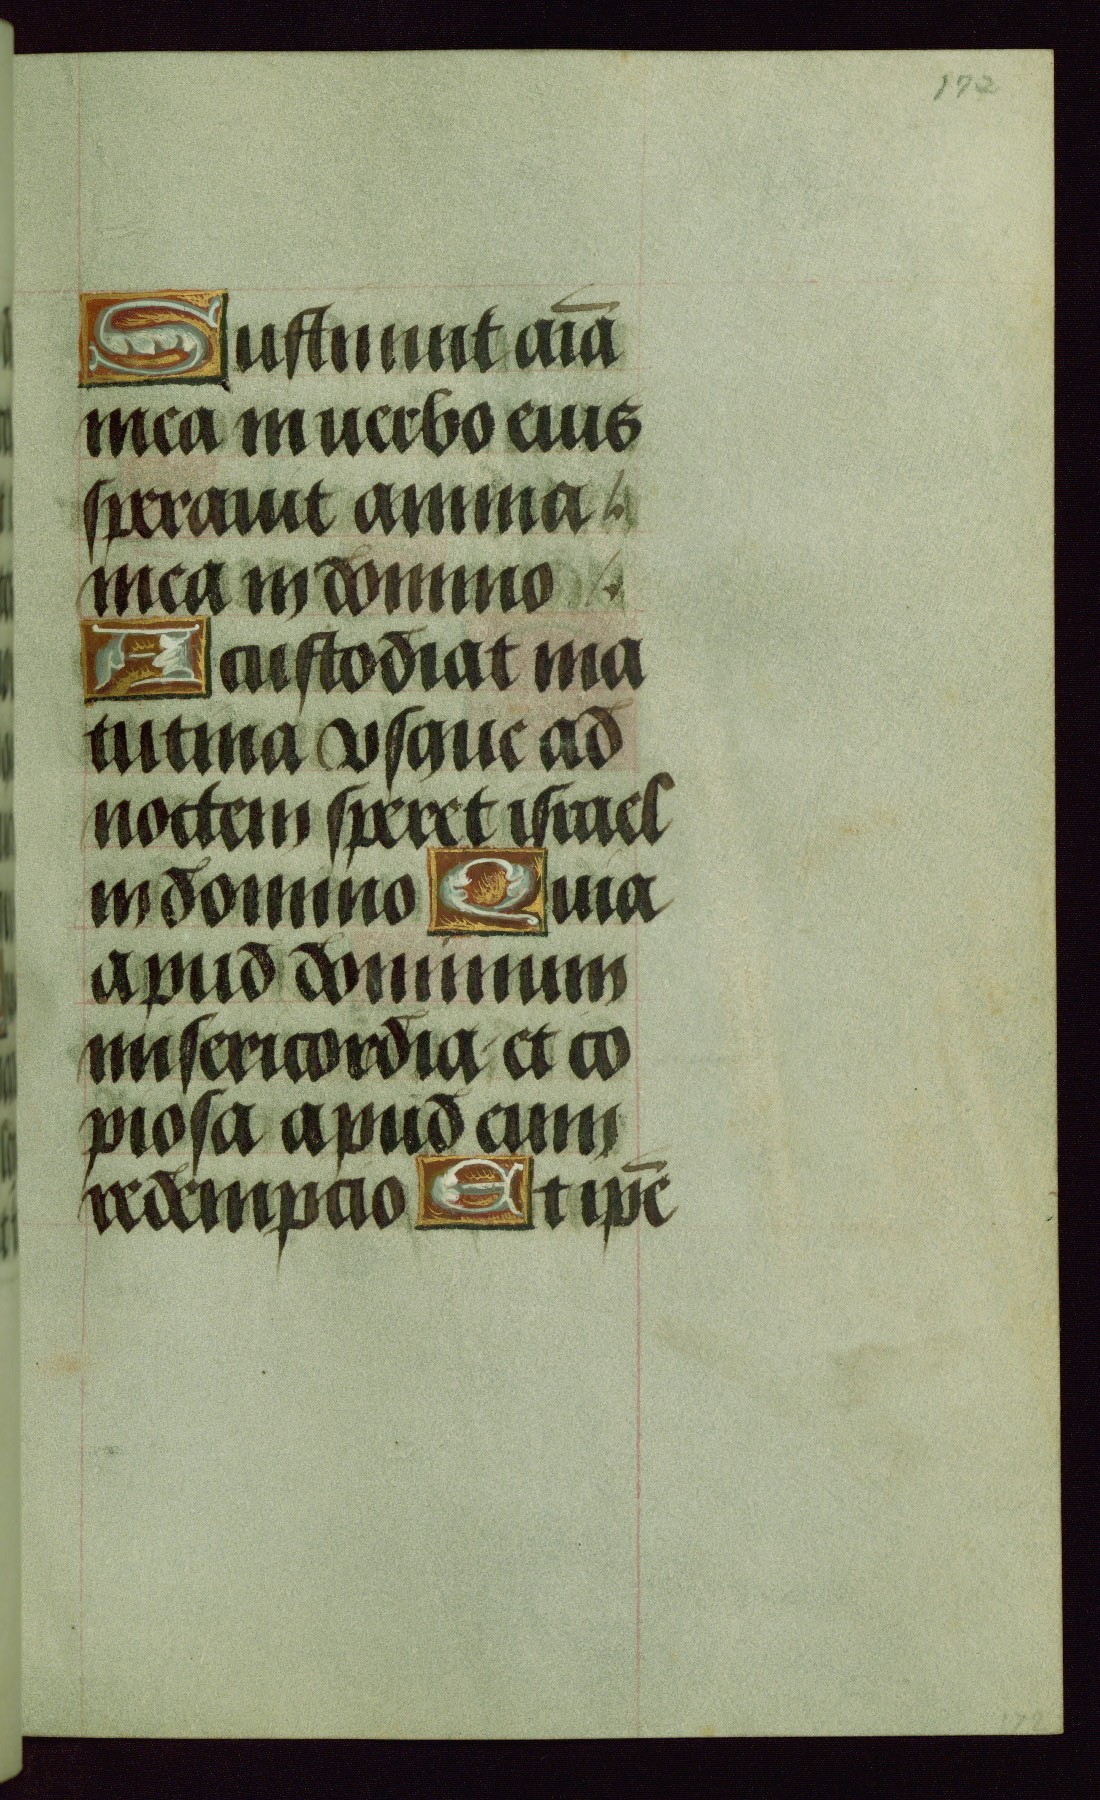 172
Sustinuit aīa
mea in uerbo eius
sperauit anima
mea in domino
A custodia⁠t ma
tutina vsque ad
noctem speret israel
in domino Quia
apud dominum
misericordia et co
piosa apud eum
redempcio Et ip̄e